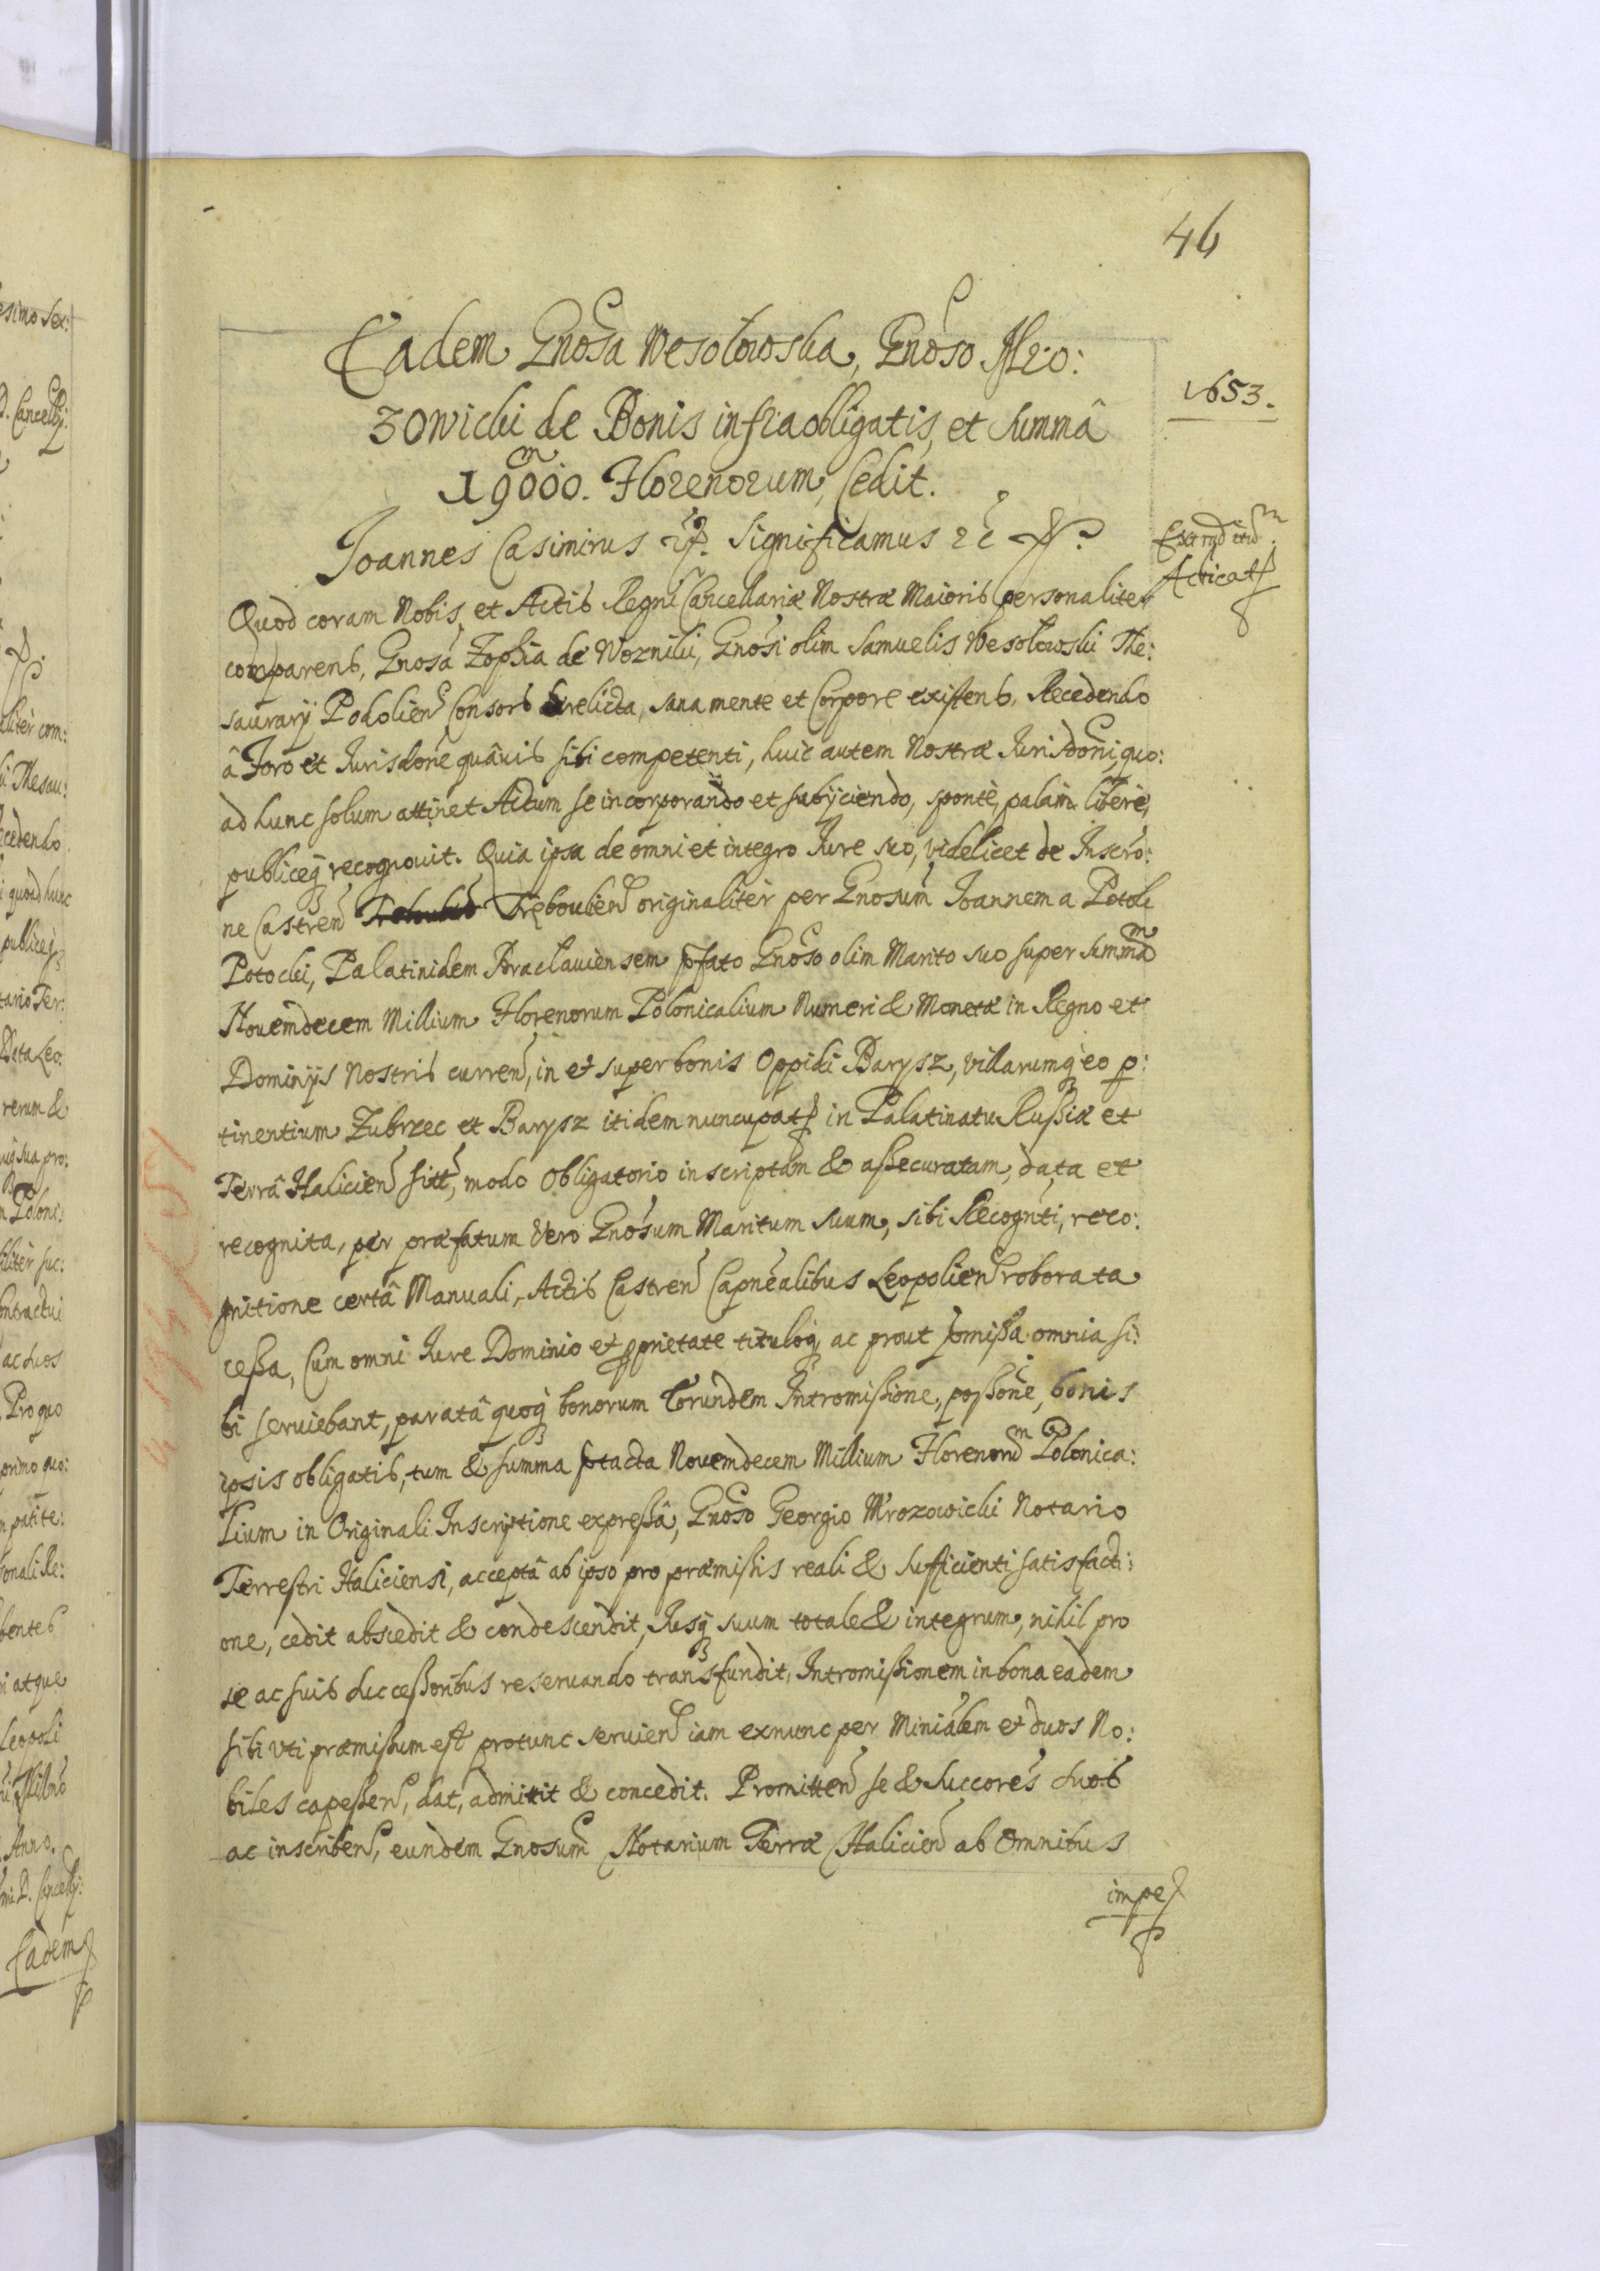 46
Eadem Gnosa Wesołowska, Gnoso Mro:
zowicki de Bonis infra obligatis, et summâ
19000. Florenorum, Cedit.
1653.
Joannes Casimirus Significamus
Acticat
Quod coram Nobis, et Actis Regni Cancellariæ Nostræ Maioris personaliter
comparens, Gnosa Zophia de Wozniki, Gnosi olim Samuelis Wesołowski The:
saurarij Podolien Consors relicta, sana mente et Corpore existens, Recedendo
â Foro et Jurisdone quâuis sibi competenti, huic autem Nostræ Jurisdoni, quo:
ad hunc solum attinet Actum se incorporando et subijciendo, sponte, palam libere,
publiceq recognouit. Quia ipsa de omni et integro Jure suo, videlicet de Inscro:
ne Castren Trębowlien originaliter per Gnosum Joannem a Potok
Potocki, Palatinidem Braclauiensem pfato Gnoso olim Marito suo super summa
Nouemdecem Millium Florenorum Polonicalium Numeri & Monetæ in Regno et
Dominijs Nostris curren, in et super bonis Oppidi Barysz, villarumq eo p:
tinentium Zubrzec et Barysz itidem nuncupat in Palatinatu Russiæ et
Terrâ Halicien sitt, modo Obligatorio inscriptam & assecuratam, data et
recognita, per præfatum vero Gnosum Maritum suum, sibi Recognti, reco:
gnitione certâ Manuali, Actis Castren Capnealibus Leopolien roborata
cessa, Cum omni Jure Dominio et pprietate tituloq, ac prout pmissa omnia si:
bi seruiebant, paratâ quoq bonorum Eorundem Intromissione, possone, bonis
ipsis obligatis, tum & summa ptacta Nouemdecem Millium Florenor Polonica:
lium in Originali Inscriptione expressâ, Gnoso Georgio Mrozowicki Notario
Terrestri Haliciensi, acceptâ ab ipso pro præmissis reali & sufficienti satisfacti:
one, cedit abscedit & condescendit, Jusq suum totale & integrum, nihil pro
se ac suis successoribus reseruando transfundit, Intromissionem in bona eadem
sibi vti præmissum est protunc seruien iam exnunc per Minialem et duos No:
biles capessen, dat, admittit & concedit. Promitten se & Succores suos
ac inscriben, eundem Gnosum Notarium Terræ Halicien ab Omnibus
impe